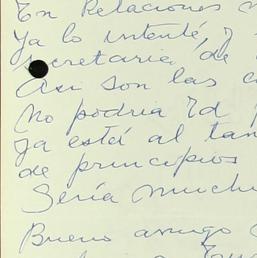 En Relaciones
ya lo intenté, y
secretaria de
Asi son las
No podria Ud
ya está al tan
de principios
Sería much
Bueno amigo